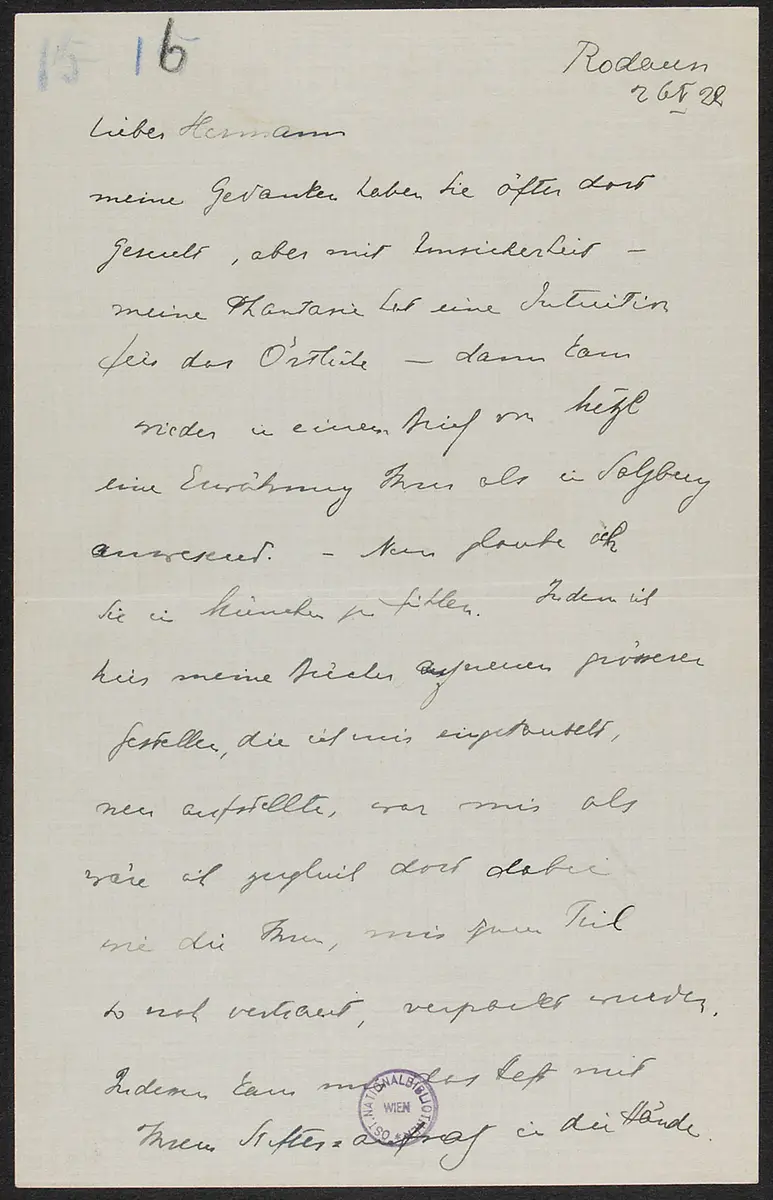 15 15
Rodaun
26 V 22
Lieber Hermann
meine Gedanken haben Sie öfter dort
gesucht, aber mit Unsicherheit –
meine Phantasie hat eine Intuition
für das Örtliche – dann kam
wieder in einem Brief von
eine Erwähnung Ihrer als in Salzburg
anwesend. – Nun glaube ich
Sie in München zu fühlen. Indem ich
hier meine Bücher auf neuen grösseren
Gestellen, die ich mir eingehandelt,
neu aufstellte, war mir als
wäre ich zugleich dort dabei
wie die Ihren, mir zum Teil
so wohl vertraut, verpackt wurden.
Indessen kam mir das Heft mit
Ihrem Stifter=aufsatz in die Hände.
ÖST. NATIONALBIBLIOTHEK
WIEN